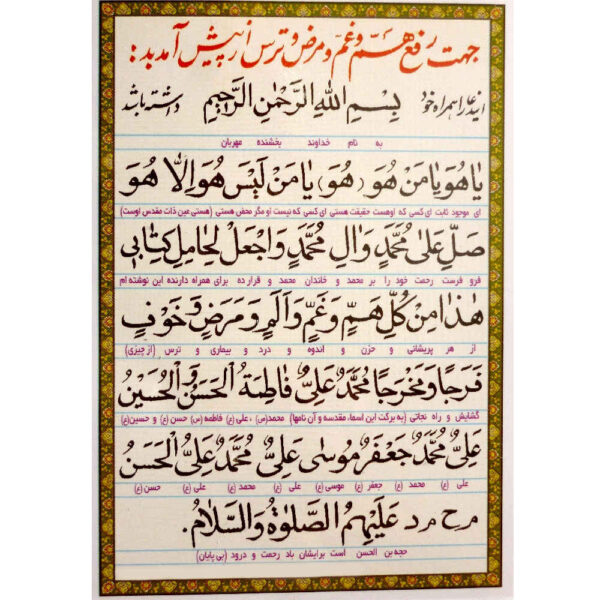 جهت رفع هَمّ و غمّ و مرض و ترس از پیش آمد بد :
این دعا را همراه خود بِسْمِ اللهِ الرَّحْمٰنِ الرَّحِیمِ داشته باشد
به نام خداوند بخشنده مهربان
یا هُوَ یا مَنْ هُوَ (هُوَ) یا مَنْ لَیْسَ هُوَ اِلّا هُوَ
ای موجود ثابت ای کسی که اوهست حقیقت هستی ای کسی که نیست او مگر محض هستی (هستی عین ذات مقدس اوست)
صَلِّ عَلیٰ مُحَمَّدٍ وَ الِ مُحَمَّدٍ وَ اجْعَلْ لِحامِلِ کِتابی
فرو فرست رحمت خود را بر محمد و خاندان محمد و قرار ده برای همراه دارنده این نوشته ام
هٰذا مِنْ کُلِّ هَمٍّ وَ غَمٍّ وَ اَلَمٍ وَ مَرَضٍ وَ خَوْفٍ
از هر پریشانی و حزن و اندوه و درد و بیماری و ترس (از چیزی)
فَرَجًا وَ مَخْرَجًا مُحَمَّدٌ عَلِیٌّ فاطِمَةُ الْحَسَنُ وَ الْحُسَیْنُ
گشایش و راه نجاتی (به برکت این اسماء مقدسه و آن نامها) محمد(ص) ، علی(ع) فاطمه(س) حسن(ع) و حسین(ع)
عَلِیٌّ مُحَمَّدٌ جَعْفَرٌ مُوسی عَلِیٌّ مُحَمَّدٌ عَلِیٌّ الْحَسَنُ
علی (ع) محمد (ع) جعفر (ع) موسی (ع) علی (ع) محمد (ع) علی (ع) حسن (ع)
م ح م د عَلَیْهِمُ الصَّلوٰةُ وَ السَّلامُ.
حجه بن الحسن است برایشان باد رحمت و درود (بی پایان)